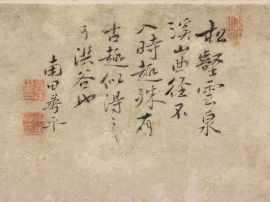 松壑雲泉
溪山曲徑不
入時趣殊有
古趣似得之
于洪谷也
南田壽平